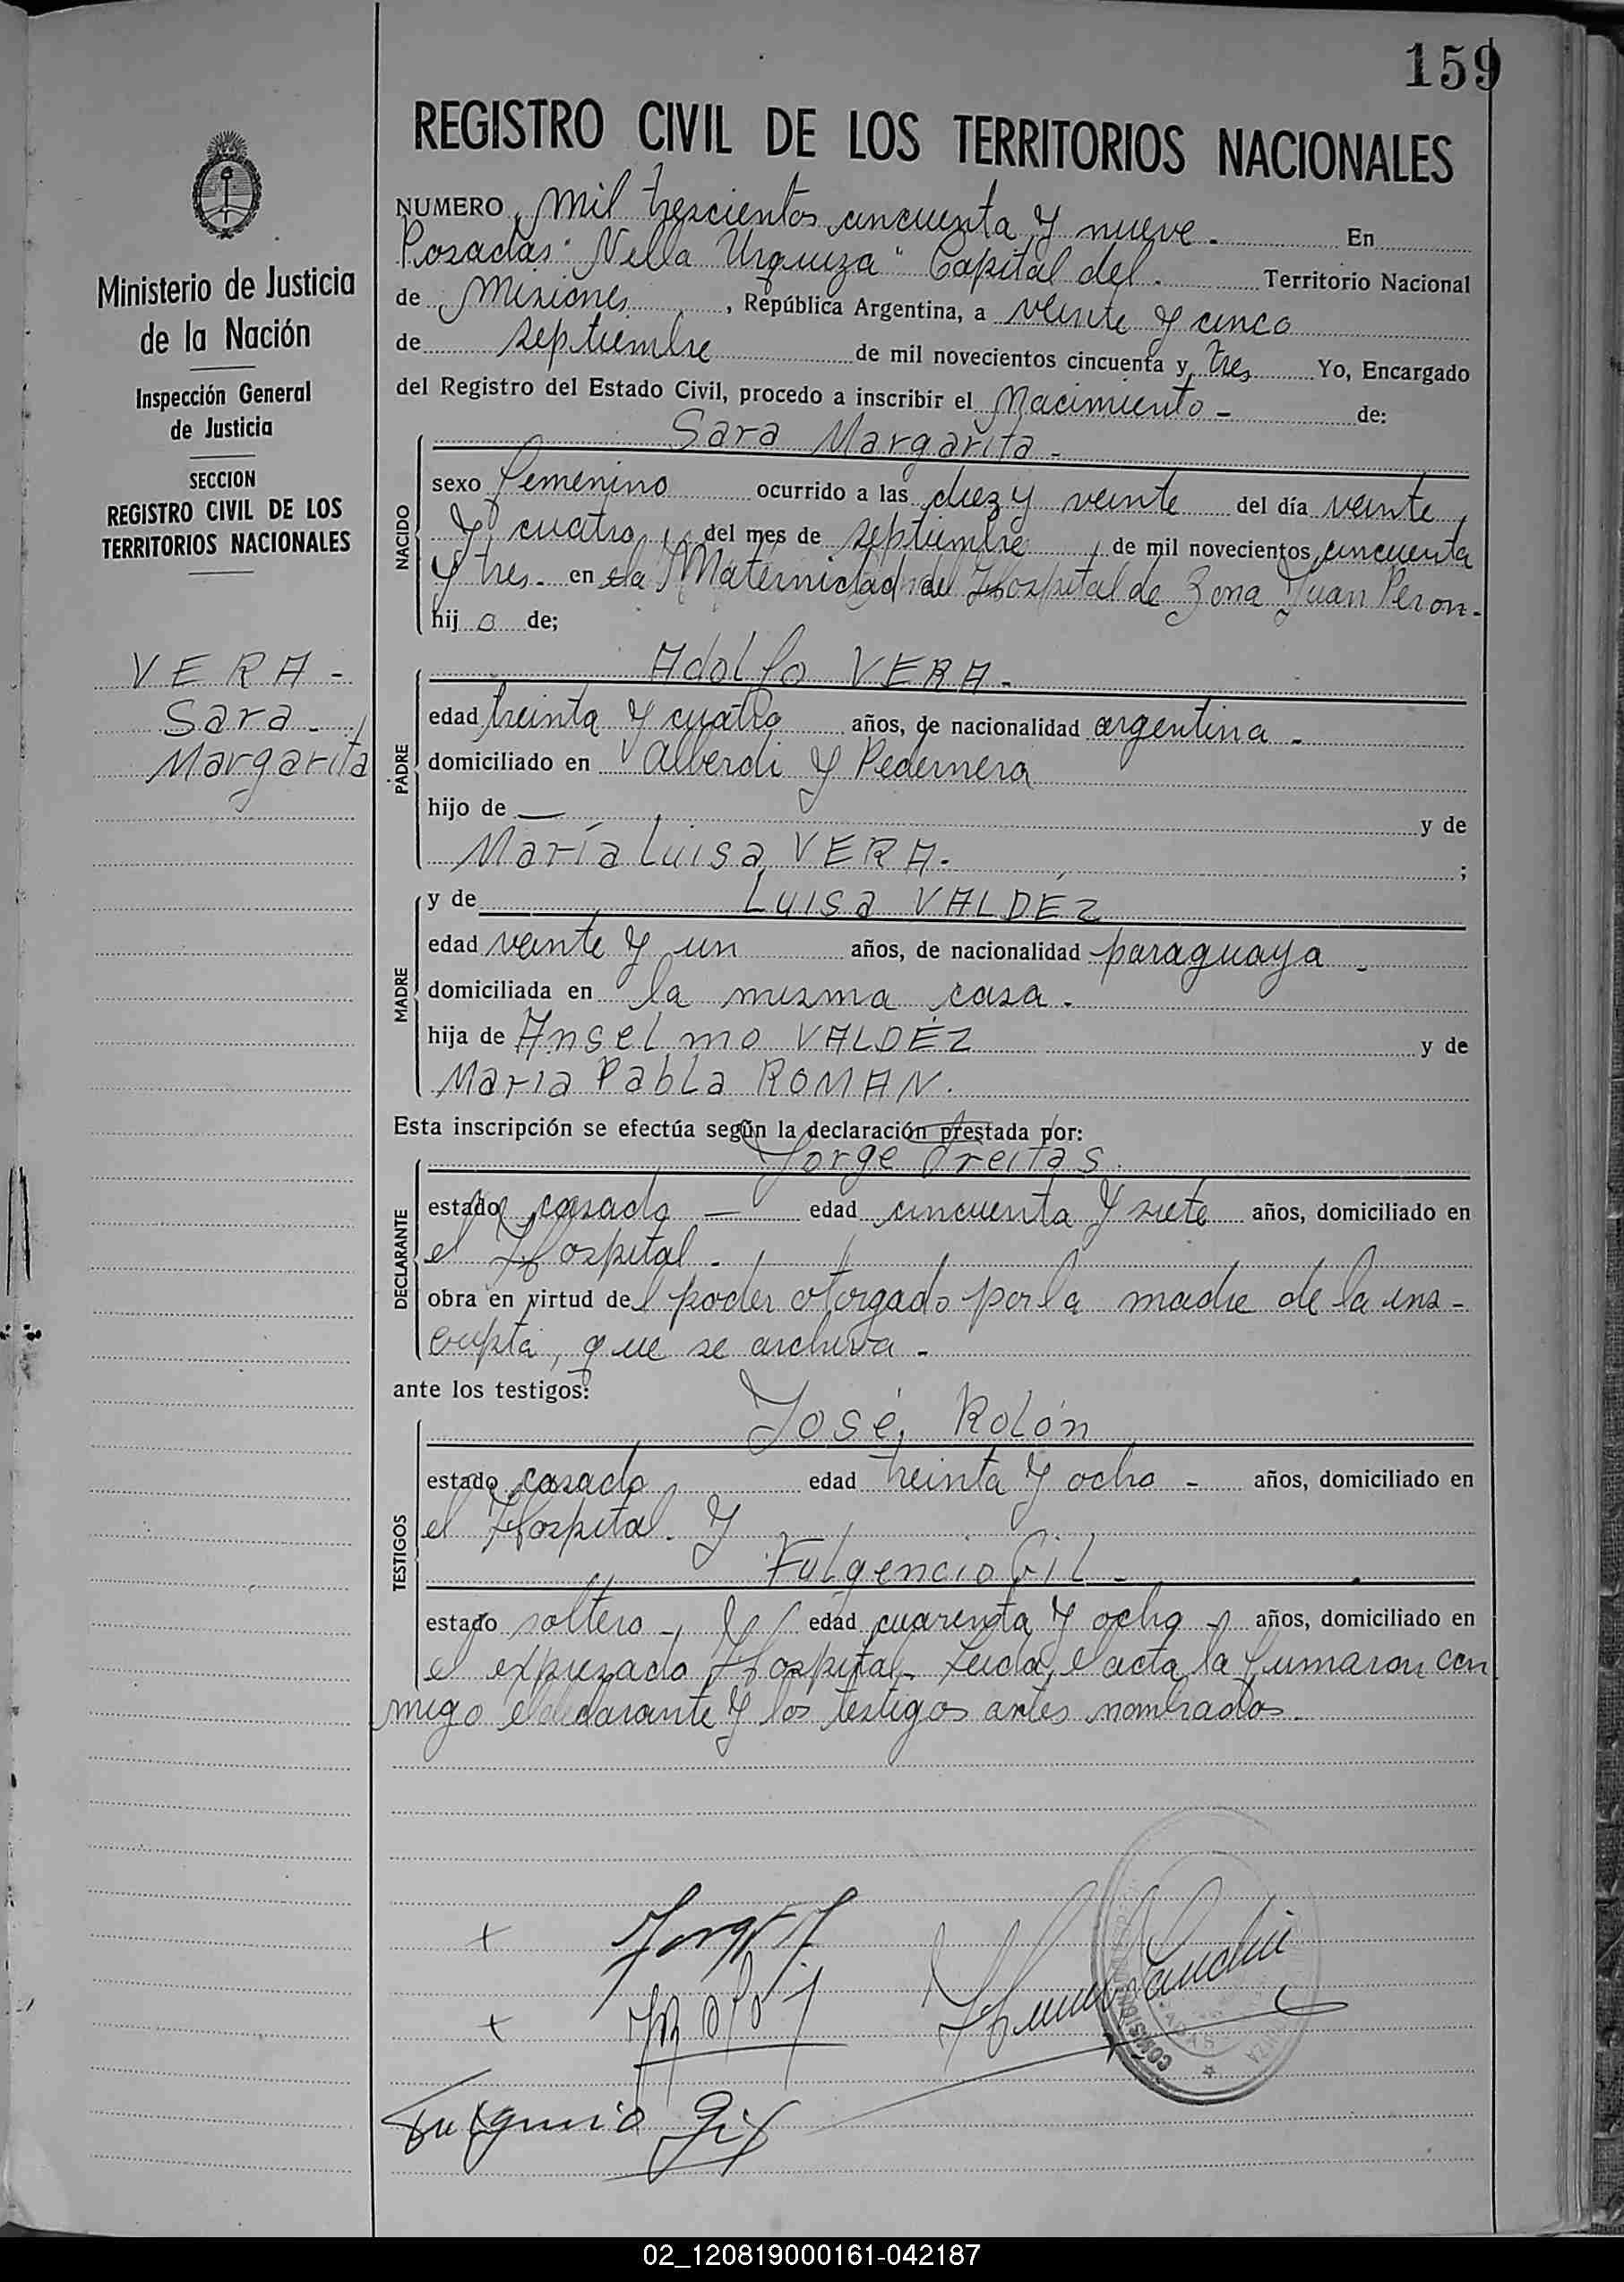 159
REGISTRO CIVIL DE LOS TERRITORIOS NACIONALES
Ministerio de Justicia
de la Nación
Inspección General
de Justicia
SECCION
REGISTRO CIVIL DE LOS
TERRITORIOS NACIONALES
VERA -
Sara -
Margarita
NUMERO mil trescientos cincuenta y nueve - En
Posadas "Villa Urquiza" Capital del Territorio Nacional
de Misiones, República Argentina, a veinte y cinco
de septiembre de mil novecientos cincuenta y tres Yo, Encargado
del Registro del Estado Civil, procedo a inscribir el Nacimiento - de:
Sara Margarita -
NACIDO
sexo femenino ocurrido a las diez y veinte del día veinte
y cuatro del mes de septiembre de mil novecientos cincuenta
y tres - en la Maternidad del Hospital de Zona Juan Peron -
hija de;
PADRE
Adolfo VERA -
edad treinta y cuatro años, de nacionalidad argentina -
domiciliado en Alberdi y Pedernera
hijo de — y de
María Luisa VERA - ;
MADRE
y de Luisa VALDEZ
edad veinte y un años, de nacionalidad paraguaya -
domiciliada en la misma casa -
hija de Anselmo VALDEZ y de
Maria Pabla ROMAN.
Esta inscripción se efectúa según la declaración prestada por:
DECLARANTE
Jorge Freitas.
estado casado — edad cincuenta y siete años, domiciliado en
el Hospital -
obra en virtud del poder otorgado por la madre de la ins-
cripta, que se archiva -
ante los testigos:
TESTIGOS
José Rolón
estado casado edad treinta y ocho - años, domiciliado en
el Hospital. y
Fulgencio Gil -
estado soltero - edad cuarenta y ocho - años, domiciliado en
el expresado Hospital. Leida el acta la firmaron con
migo el declarante y los testigos antes nombrados.
Fulgencio Gil
02_120819000161-042187